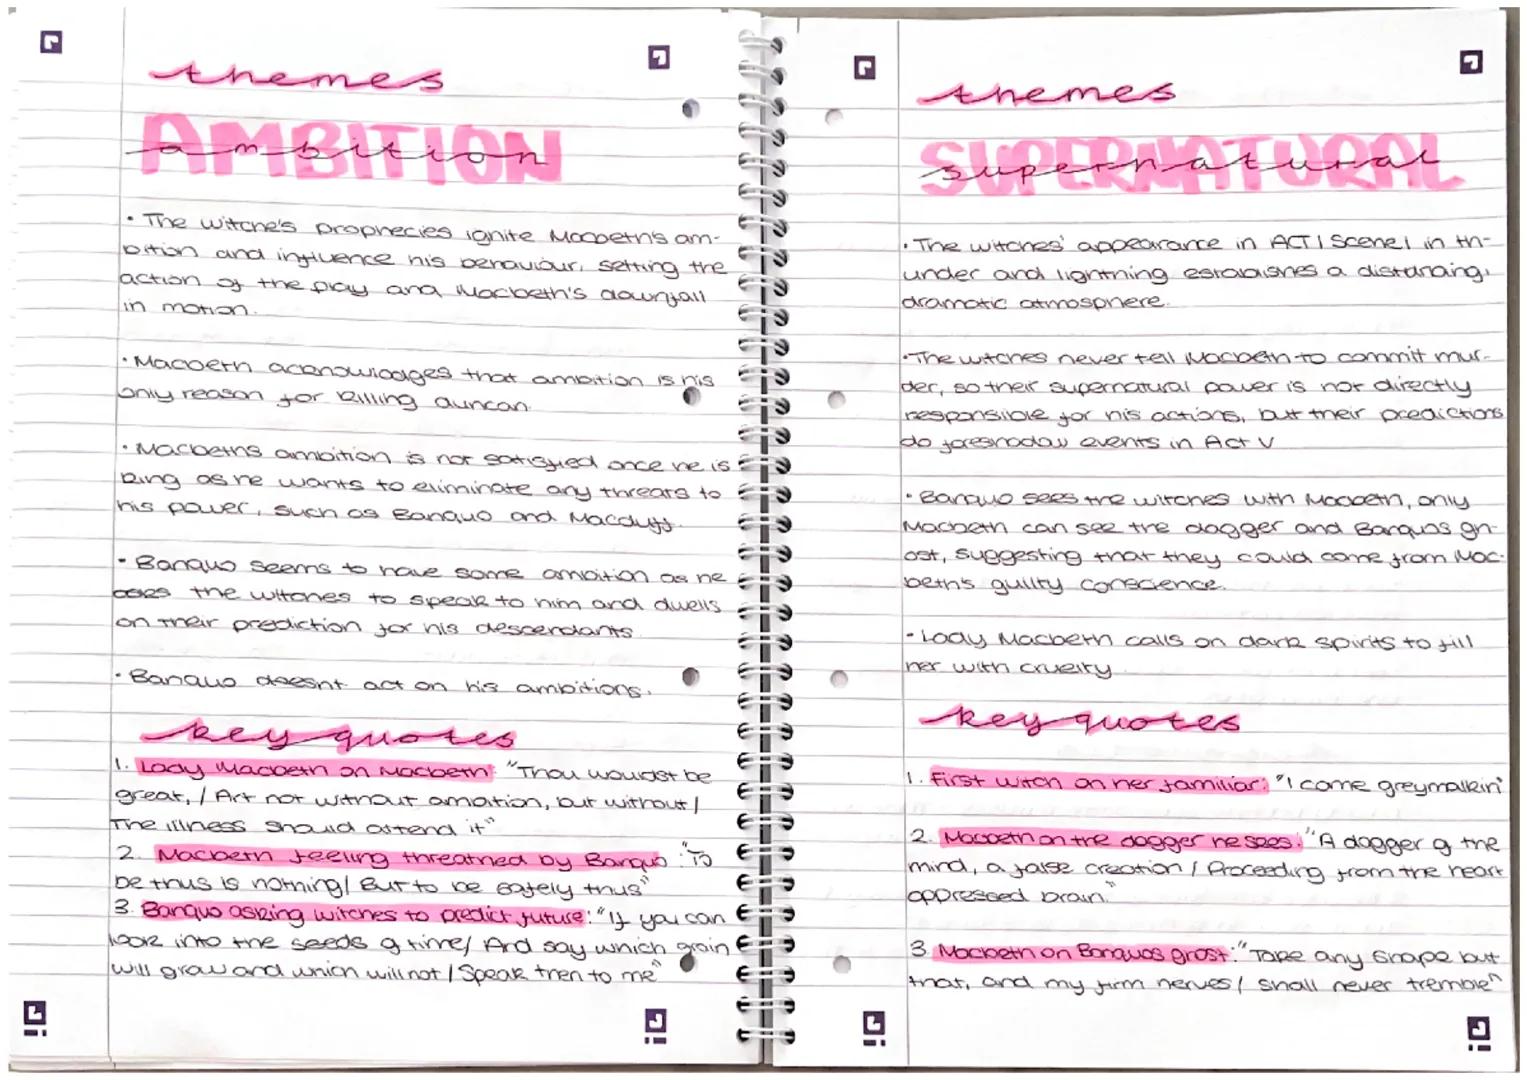 themes
AMBITION
ambition
• The witche's prophecies ignite Macbeth's am-
bition and influence his behaviour, setting the
action of the play and Macbeth's downfall
in motion.
• Macbeth acknowledges that ambition is his
only reason for killing duncan.
• Macbeths ambition is not satisfied once he is
king as he wants to eliminate any threats to
his power, such as Banquo and Macduff.
• Banquo seems to have some ambition as he
asks the witches to speak to him and dwells
on their prediction for his descendants.
• Banquo doesnt act on his ambitions.
key quotes
1. Lady Macbeth on Macbeth: "Thou wouldst be
great, / Art not without ambition, but without /
The illness should attend it"
2. Macbeth feeling threatned by Banquo: "To
be thus is nothing/ But to be safely thus"
3. Banquo asking witches to predict future: "If you can
look into the seeds of time/ And say which grain
will grow and which will not / Speak then to me"
themes
SUPERNATURAL
supernatural
• The witches' appearance in ACT 1 Scene 1 in th-
under and lightning establishes a distancing,
dramatic atmosphere.
• The witches never tell Macbeth to commit mur-
der, so their supernatural power is not directly
responsible for his actions, but their predictions
do foreshadow events in Act V
• Banquo sees the witches with Macbeth, only
Macbeth can see the dagger and Banquos gh-
ost, suggesting that they could come from Mac-
beth's guilty conscience.
• Lady Macbeth calls on dark spirits to fill
her with cruelty.
key quotes
1. First witch on her familiar: "I come greymalkin"
2. Macbeth on the dagger he sees: "A dagger of the
mind, a false creation / Proceeding from the heart
oppressed brain."
3. Macbeth on Banquos ghost: "Take any shape but
that, and my firm nerves / shall never tremble"